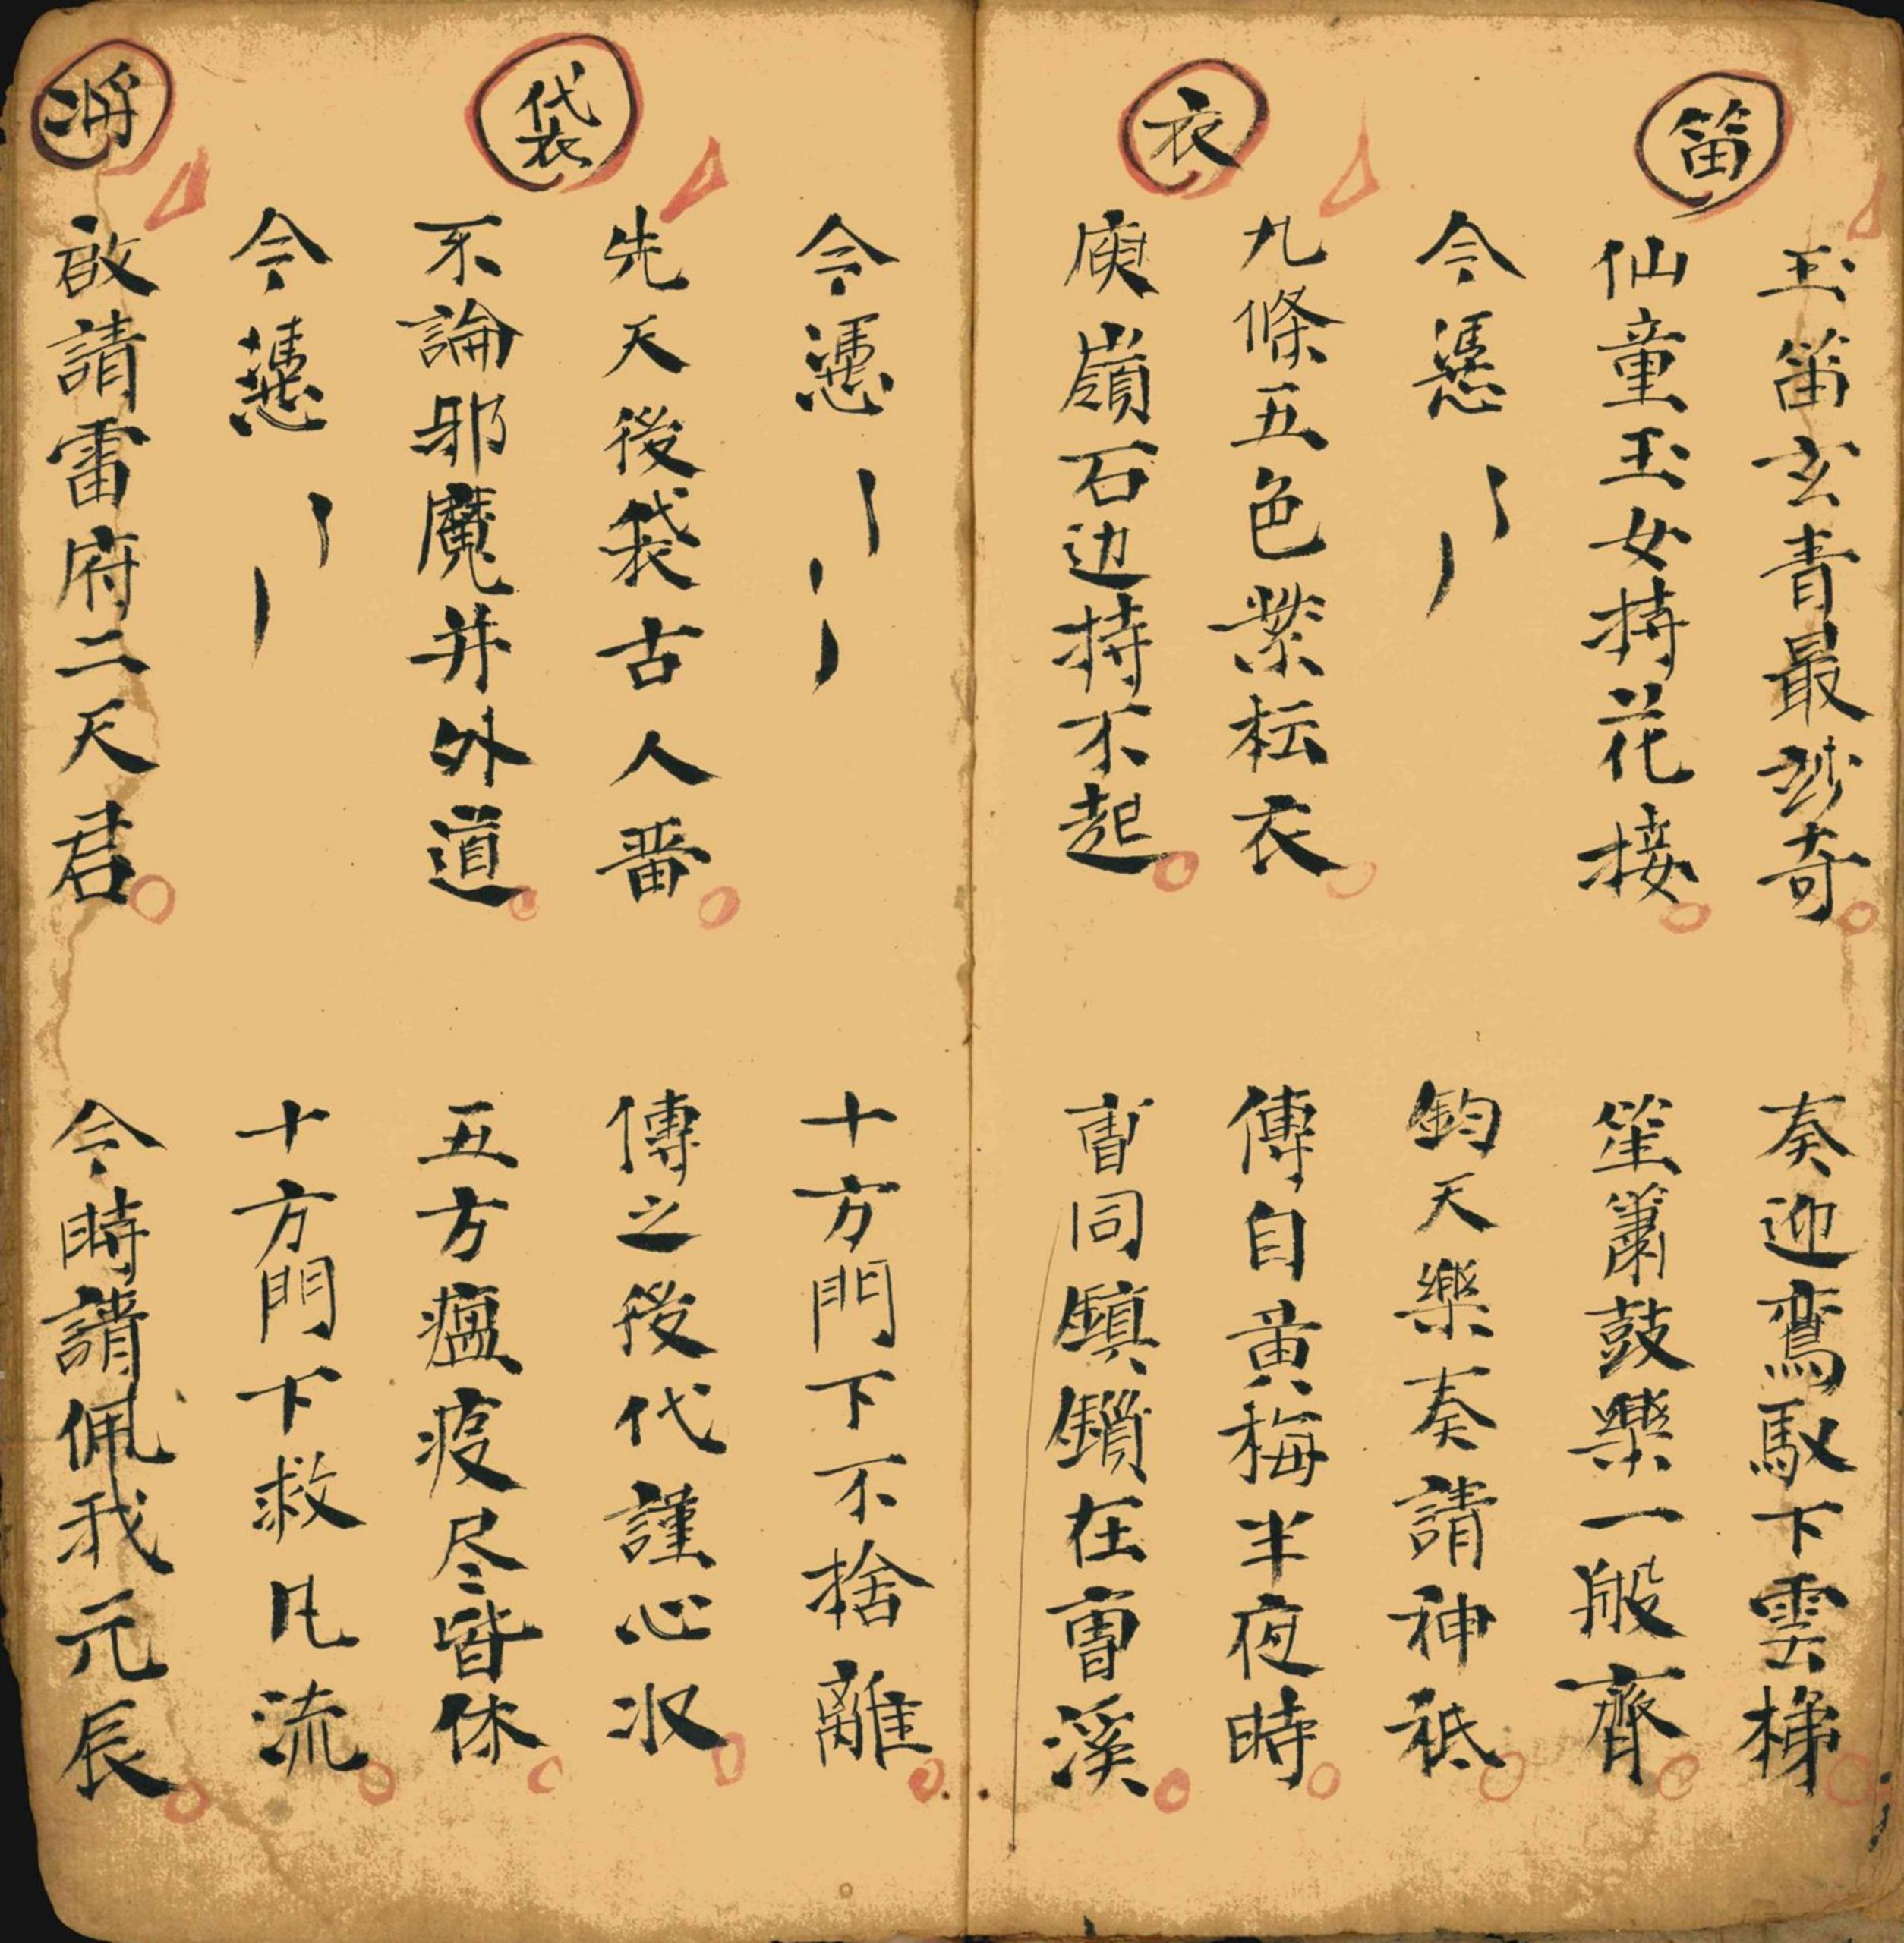 笛
玉笛玄青最玅奇 奏迎鸞馭下雲梯
仙童玉女持花接 笙簫鼓樂一般齊
今憑 鈞天樂奏請神祗
衣
九條五色紫枟衣 傳自黄梅半夜時
庾嶺石边持不起 曺同鎮鎖在曺溪
今憑 十方門下不捨離
袋
先天後袋古人畨 傳之後代謹心收
不論邪魔并外道 五方瘟疫尽皆休
今憑 十方門下救凡流
啟請雷府二天君 今時請佩我元辰